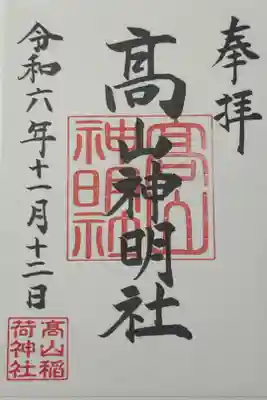 奉拝
髙山神明社
髙山神明社
令和六年十一月十二日
髙山稲荷神社